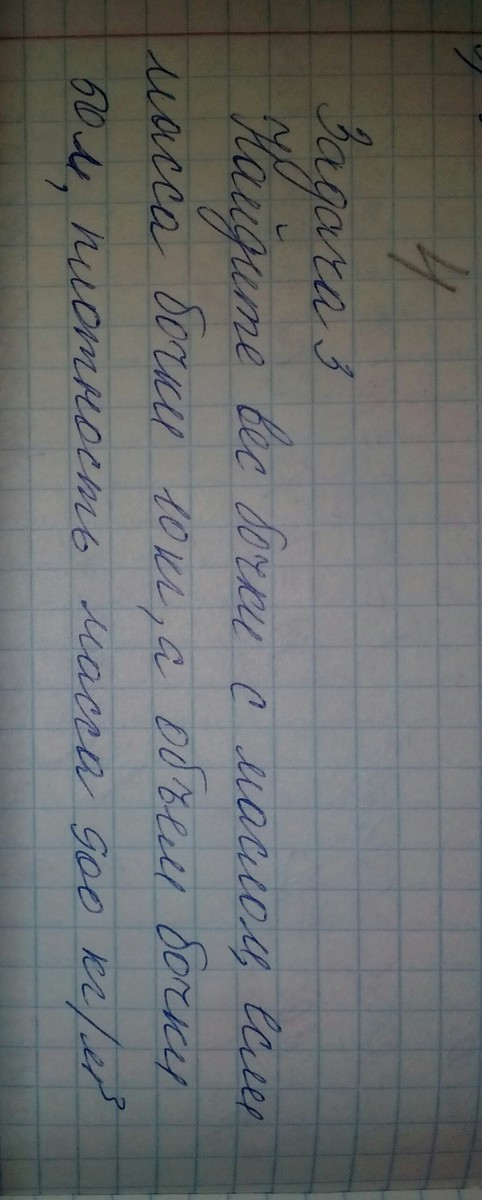 4
Задача 3
Найдите вес бочки с маслом, если
масса бочки 10кг, а объем бочки
50л, плотность масса 900 кг/м³